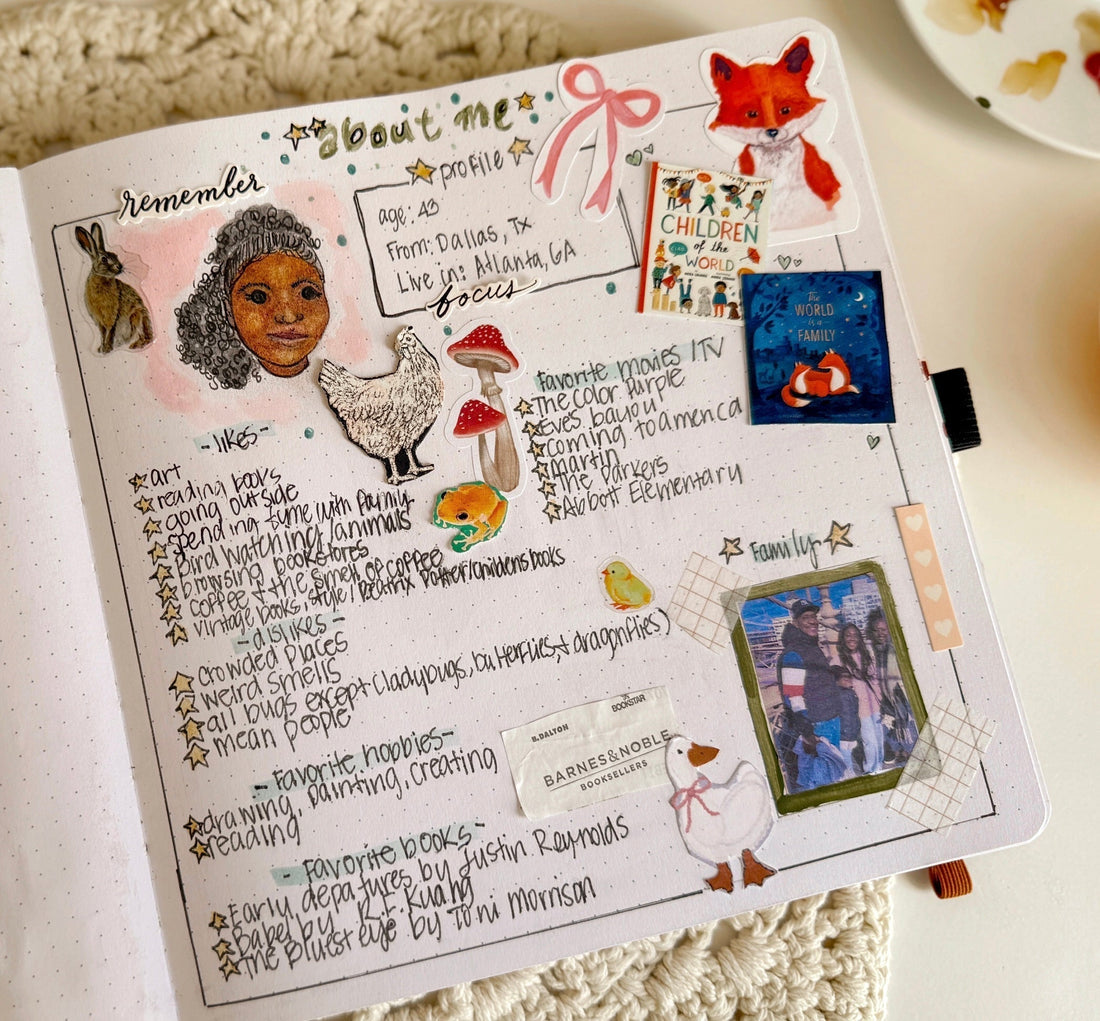 about me
remember
profile
age: 43
From: Dallas, TX
Live in: Atlanta, GA
focus
CHILDREN
of the
WORLD
The
WORLD
is a
FAMILY
- likes -
art
reading books
going outside
spending time with family
Bird watching/animals
browsing bookstores
coffee & the smell of coffee
vintage books, style/Beatrix Potter/childrens books
- dislikes -
crowded places
weird smells
all bugs except (ladybugs, butterflies, & dragonflies)
mean people
- Favorite hobbies -
drawing, painting, creating
reading
- Favorite books -
Early depatures by Justin Reynolds
Babel by R.F. Kuang
The Bluest eye by Toni Morrison
Favorite movies/TV
The color Purple
Eve's bayou
coming to america
Martin
The Parkers
Abbott Elementary
Family
B.DALTON
BOOKSTAR
BARNES&NOBLE
BOOKSELLERS